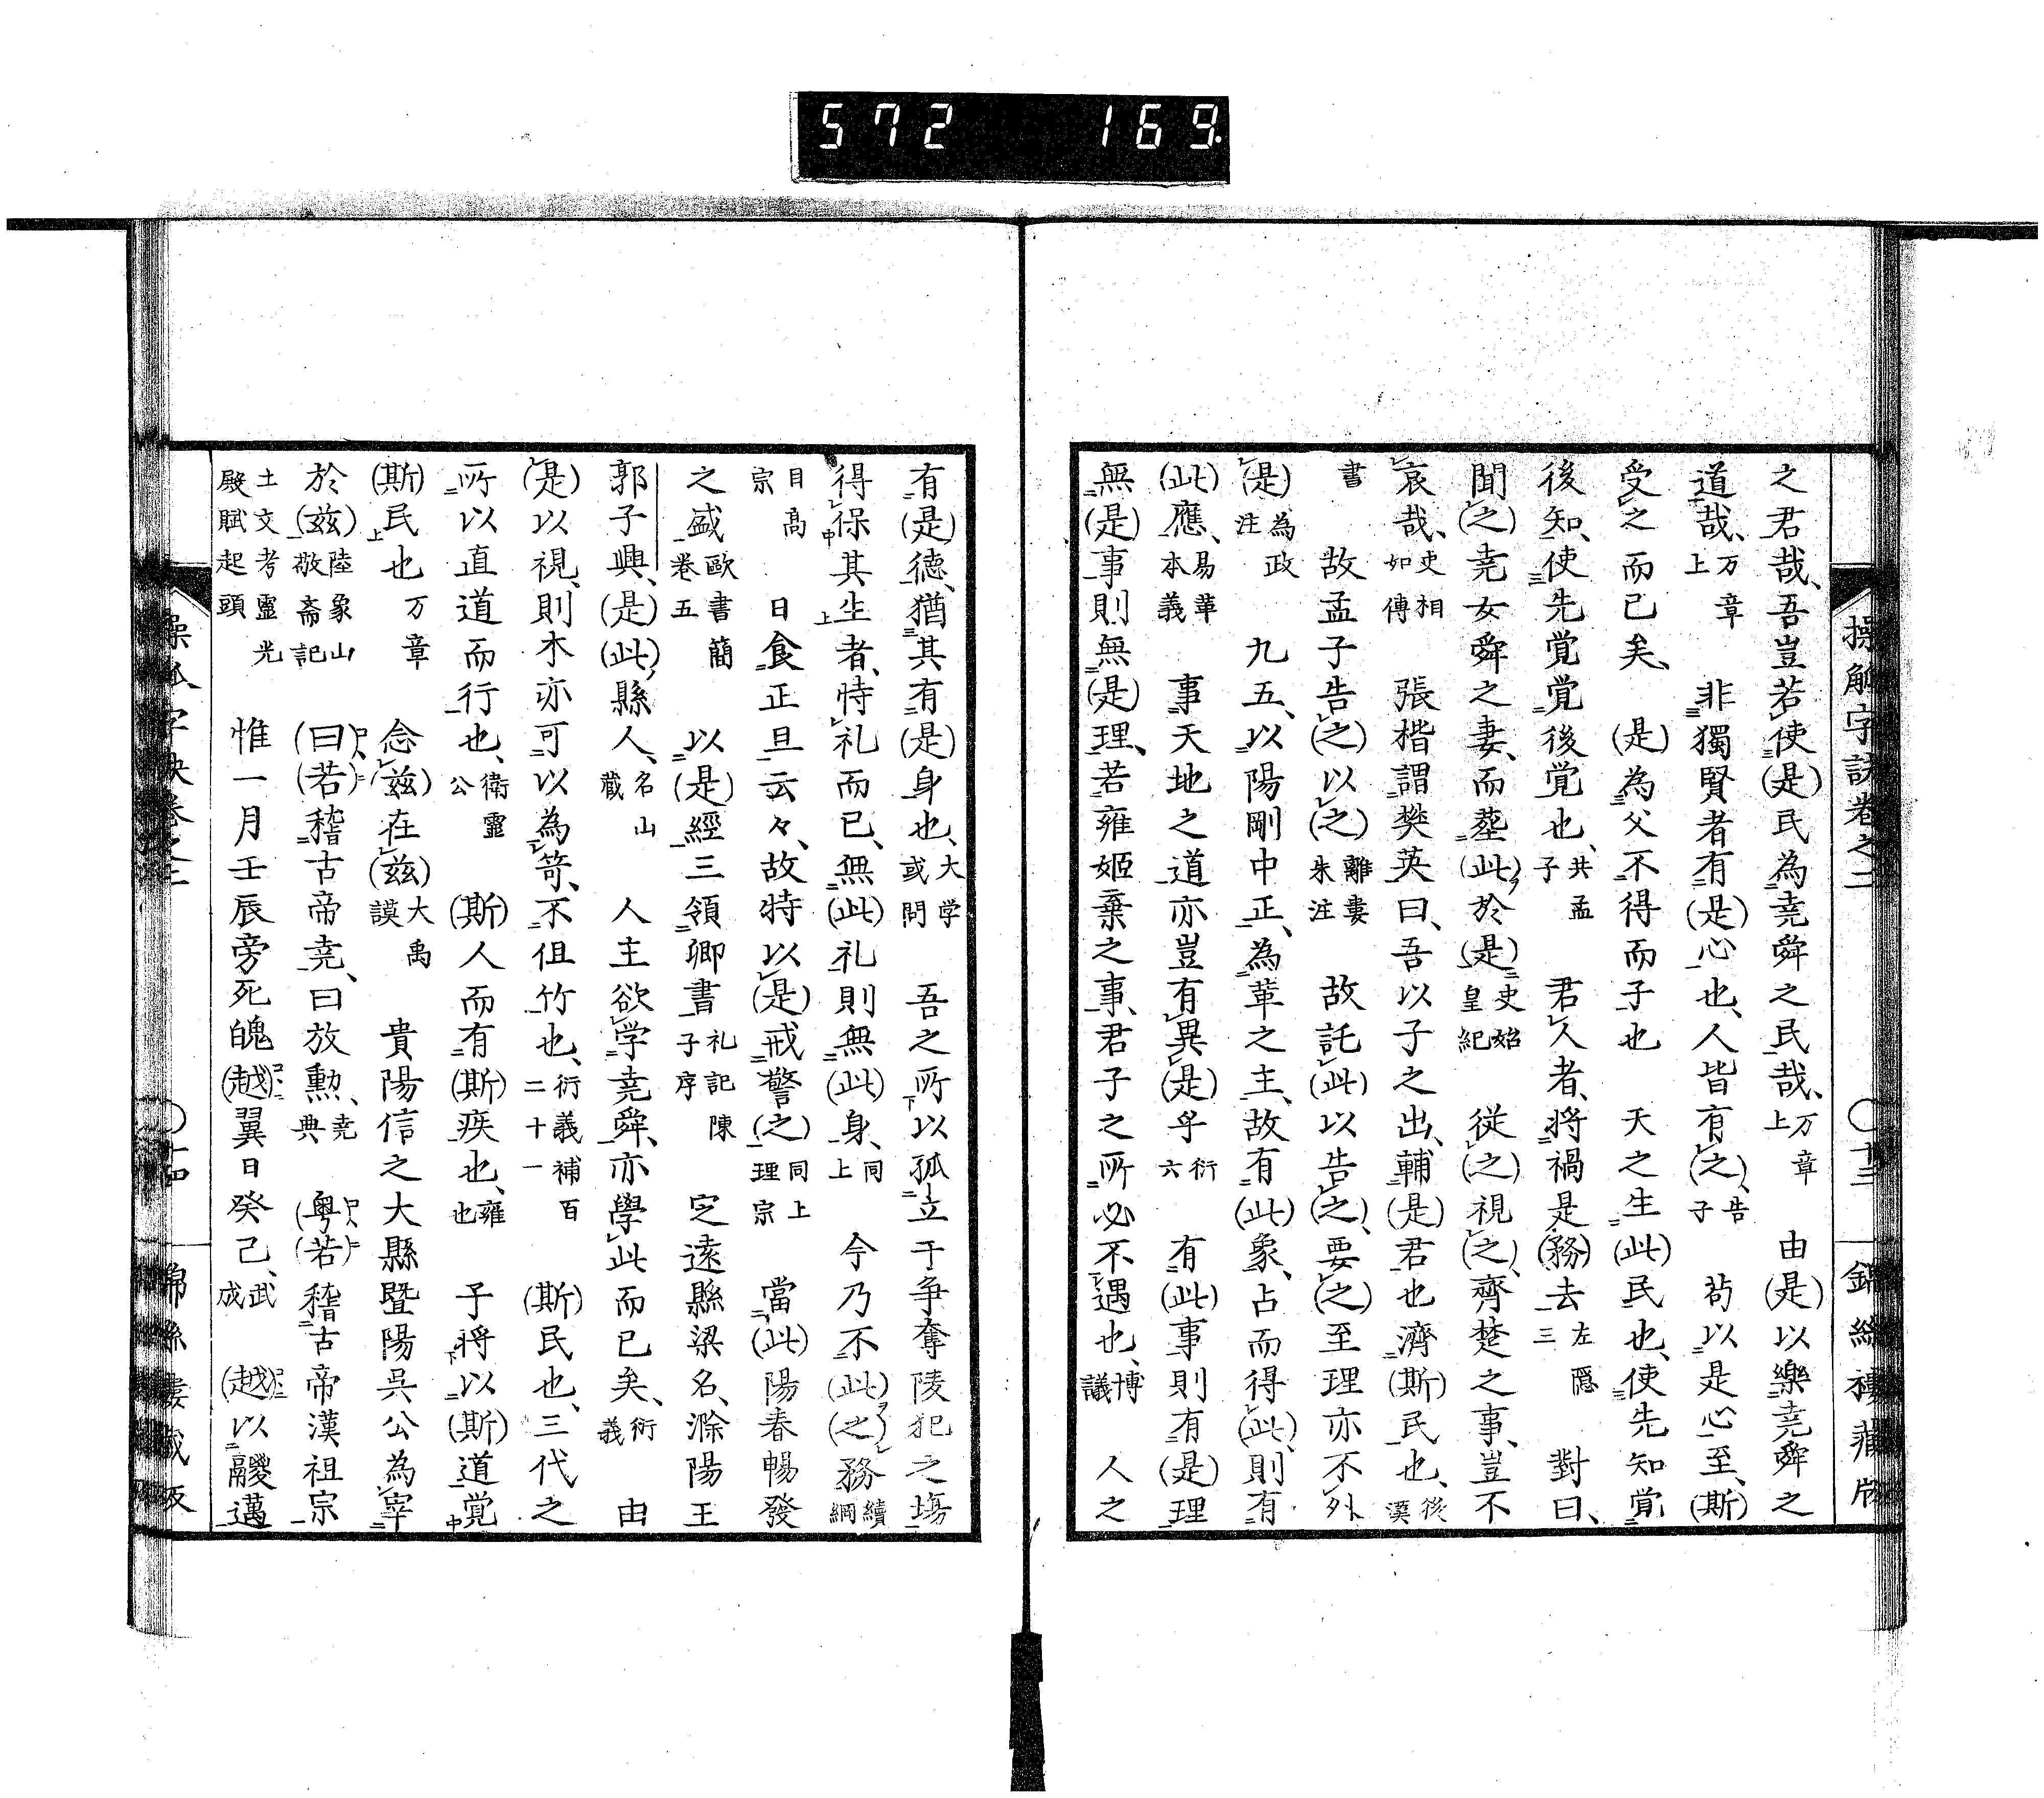 572 169
操觚字訣卷之二 〇十三 錦絲樓藏版
之君哉、吾豈若使(是)民為堯舜之民哉、万章上 由(是)以樂堯舜之
道哉、万章上 非獨賢者有(是)心也、人皆有(之)、告子 苟以是心至、(斯)
受之而已矣、 (是)為父不得而子也 天之生(此)民也、使先知覚
後知、使先覚覚後覚也、共孟子 君人者、將禍是(務)去 左隠三 對曰、
聞(之)堯女舜之妻、而葬(此)於(是) 史始皇紀 從(之)視(之)、齊楚之事、豈不
哀哉、史相如傳 張楷謂樊英曰、吾以子之出、輔(是)君也濟(斯)民也、後漢
書 故孟子告(之)以(之) 離婁朱注 故託(此)以告(之)、要(之)至理亦不外
(是) 為政注 九五、以陽剛中正、為革之主、故有(此)象、占而得(此)、則有
(此)應、易革本義 事天地之道亦豈有異(是)乎 衍六 有(此)事則有(是)理
無(是)事則無(是)理、若雍姬棄之事、君子之所必不遇也、博議 人之
有(是)德、猶其有(是)身也、大学或問 吾之所以孤立于争奪陵犯之塲
得保其生者、恃礼而已、無(此)礼則無(此)身、同上 今乃不(此)(之)務 續綱
目高宗 日食正旦云々、故特以(是)戒警(之) 同上理宗 當(此)陽春暢發
之盛 歐書簡卷五 以(是)經三領卿書 礼記陳子序 定遠縣梁名、滁陽王
郭子興、(是)(此)縣人、名山藏 人主欲学堯舜、亦學此而已矣、衍義 由
(是)以視、則木亦可以為笴、不但竹也、衍義補百二十一 (斯)民也、三代之
所以直道而行也、衛靈公 (斯)人而有(斯)疾也、雍也 予将以(斯)道覚
(斯)民也 万章上 念(玆)在(玆) 大禹謨 貴陽信之大縣暨陽吳公為宰
於(玆) 陸象山敬斎記 (曰)(若)稽古帝堯、曰放勳、堯典 (粤)(若)稽古帝漢祖宗
土文考靈光殿賦起頭 惟一月壬辰旁死魄(越)翼日癸己、武成 (越)以鬷邁
操觚字訣卷之二 〇十四 錦絲樓藏板